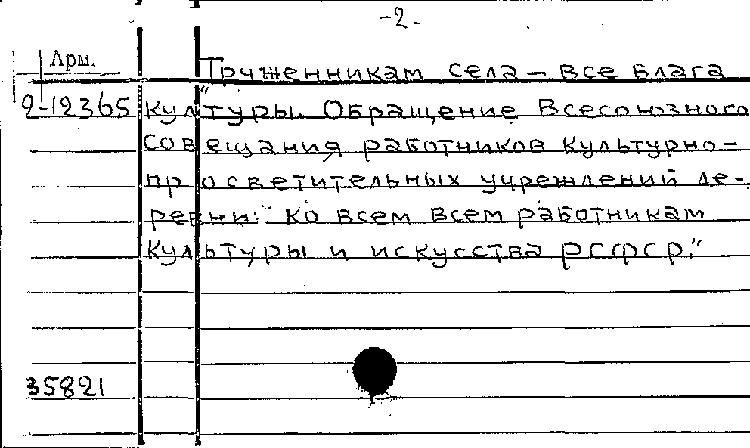 -2.
Арш.
Труженникам села — все блага
2-12365 культуры. Обращение Всесоюзного
совещания работников культурно-
просветительных учреждений де-
ревни: "Ко всем всем работникам
культуры и искусства РСФСР."
35821